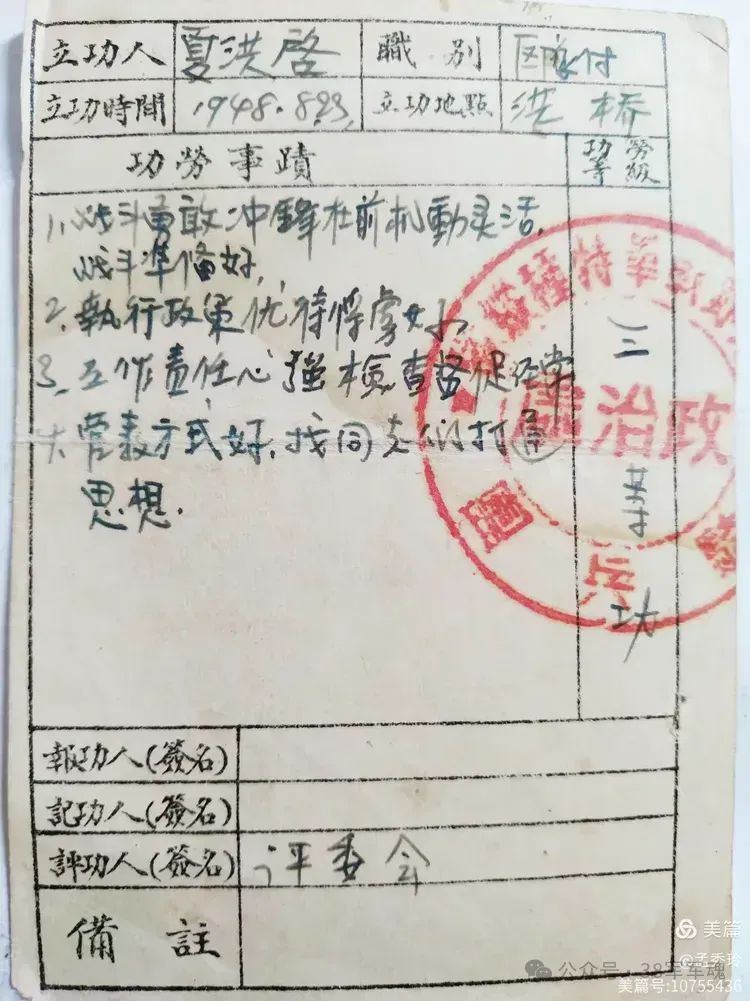 立功人 夏洪啓 職別
立功時間 1948.8.23. 立功地點 洪橋
功勞事蹟 功勞等級
1、战斗勇敢冲锋在前机動灵活,
战斗準備好,
2、執行政策优待俘虏好
3、工作責任心强檢查督促经常
管教方式好,找同志们打
思想.
三等功
政治
報功人(簽名)
記功人(簽名)
評功人(簽名) 评委会
備註
美篇
@孟季玲
公众号 · 38军军魂
美篇号:10755436